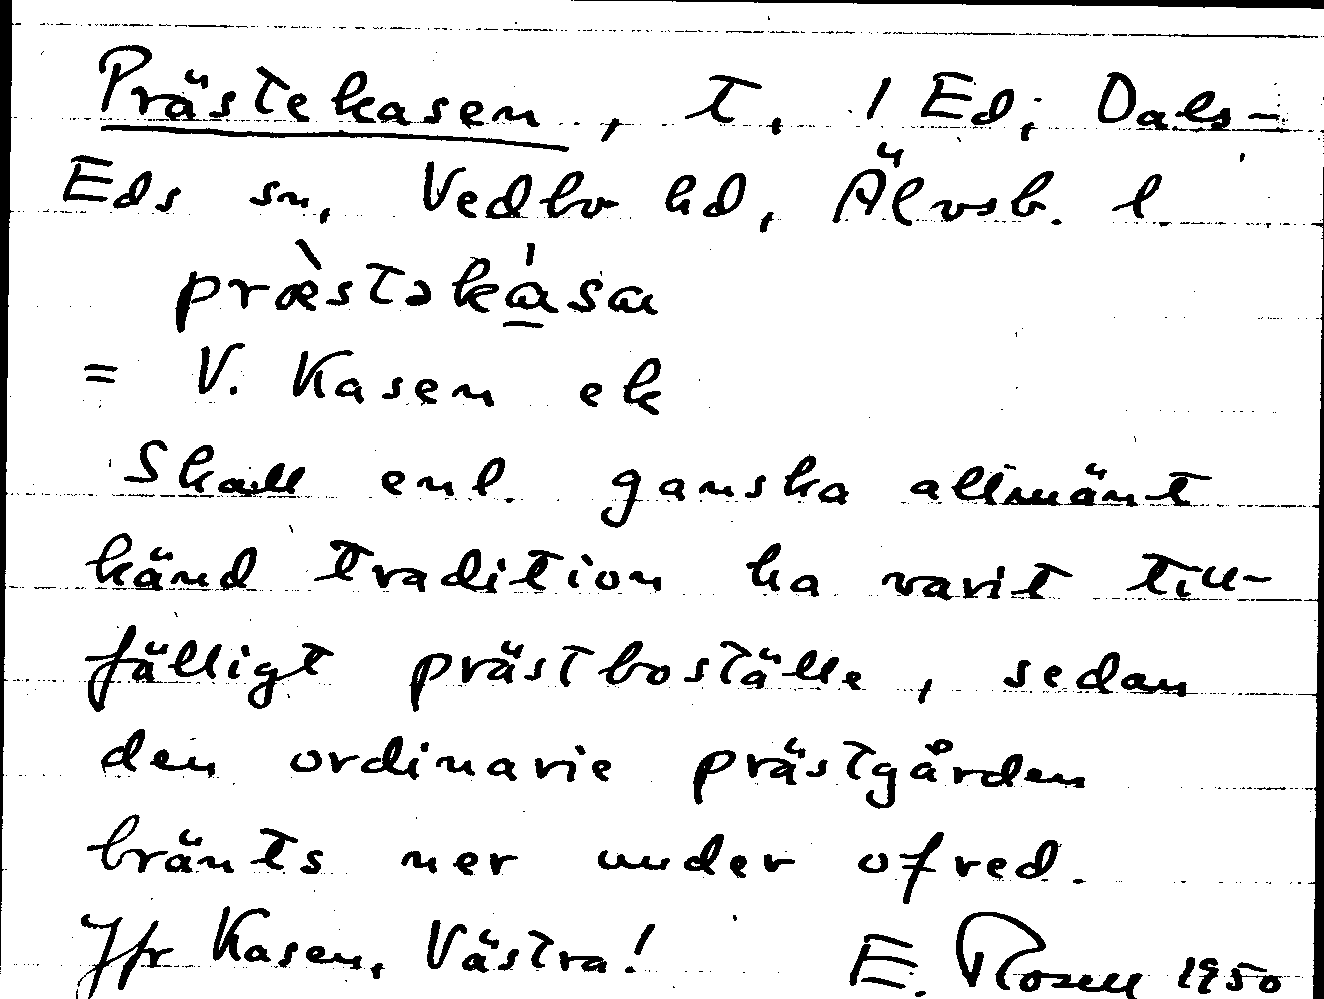 Prästekasen, t. 1 Ed, Dals-
Eds sn, Vedbo hd, Älvsb. l.
præ̀stəkása
= V. Kasen ek
Skall enl. ganska allmänt
känd tradition ha varit till-
fälligt prästboställe, sedan
den ordinarie prästgården
bränts ner under ofred.
Jfr Kasen, Västra! E. Rosell 1950